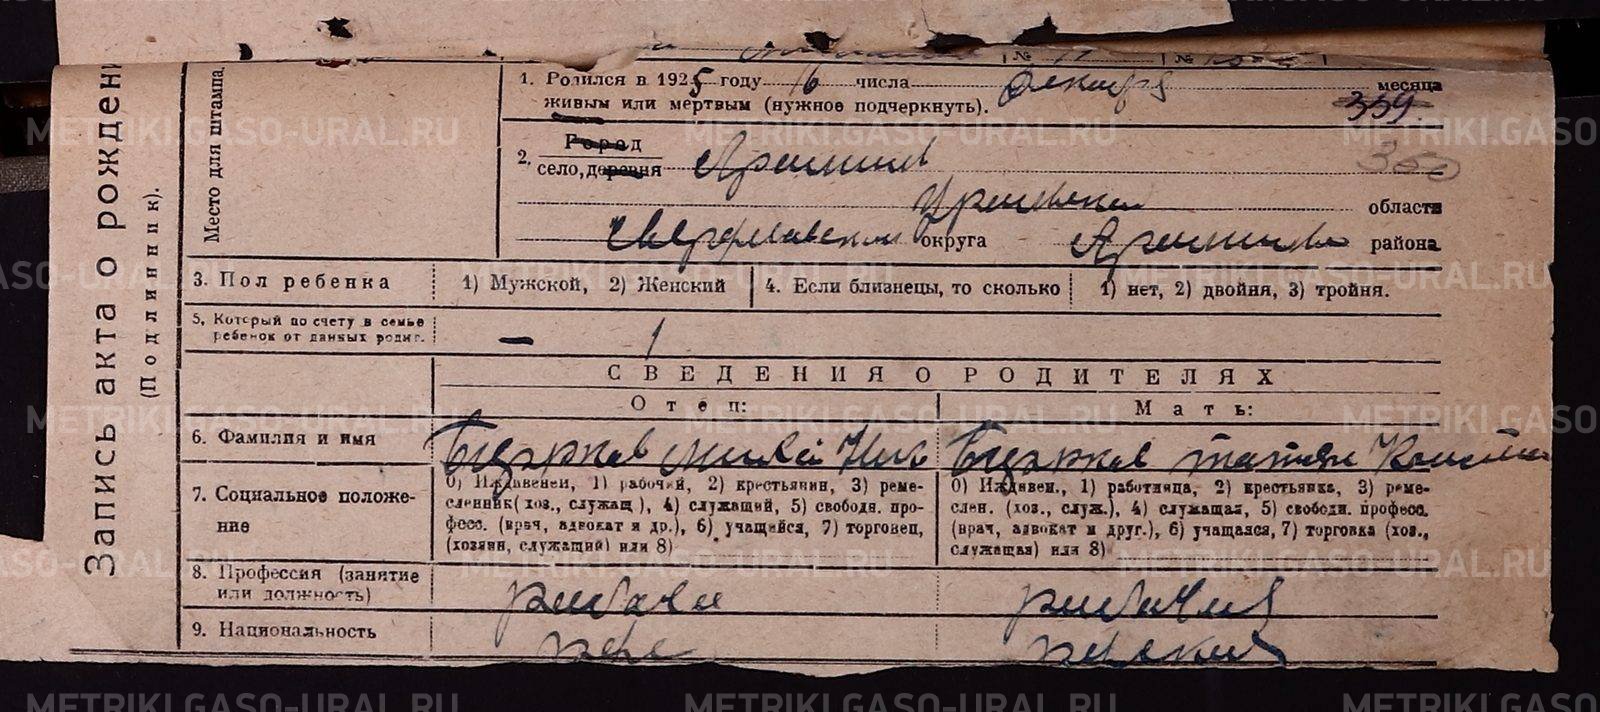 Запись акта о рождени
(Подлинник).
Место для штампа.
№ №
1. Родился в 1925 году 16 числа Декабря месяца
живым или мертвым (нужное подчеркнуть).
359.
360
2. Город
село, деревня
Уральской области
Свердловском округа района
3. Пол ребенка 1) Мужской, 2) Женский 4. Если близнецы, то сколько 1) нет, 2) двойня, 3) тройня.
5. Который по счету в семье
ребенок от данных родит. — 1
СВЕДЕНИЯ О РОДИТЕЛЯХ
Отец: Мать:
6. Фамилия и имя
7. Социальное положе-
ние
0) Иждивенец, 1) рабочий, 2) крестьянин, 3) реме-
сленник (хоз., служащ.), 4) служащий, 5) свободн. про-
фесс. (врач, адвокат и др.), 6) учащийся, 7) торговец,
(хозяин, служащий) или 8)
0) Иждивен., 1) работница, 2) крестьянка, 3) реме-
слен. (хоз., служ.), 4) служащая, 5) свободн. професс.
(врач, адвокат и друг.), 6) учащаяся, 7) торговка (хоз.,
служащая) или 8)
8. Профессия (занятие
или должность)
9. Национальность
METRIKI.GASO-URAL.RU